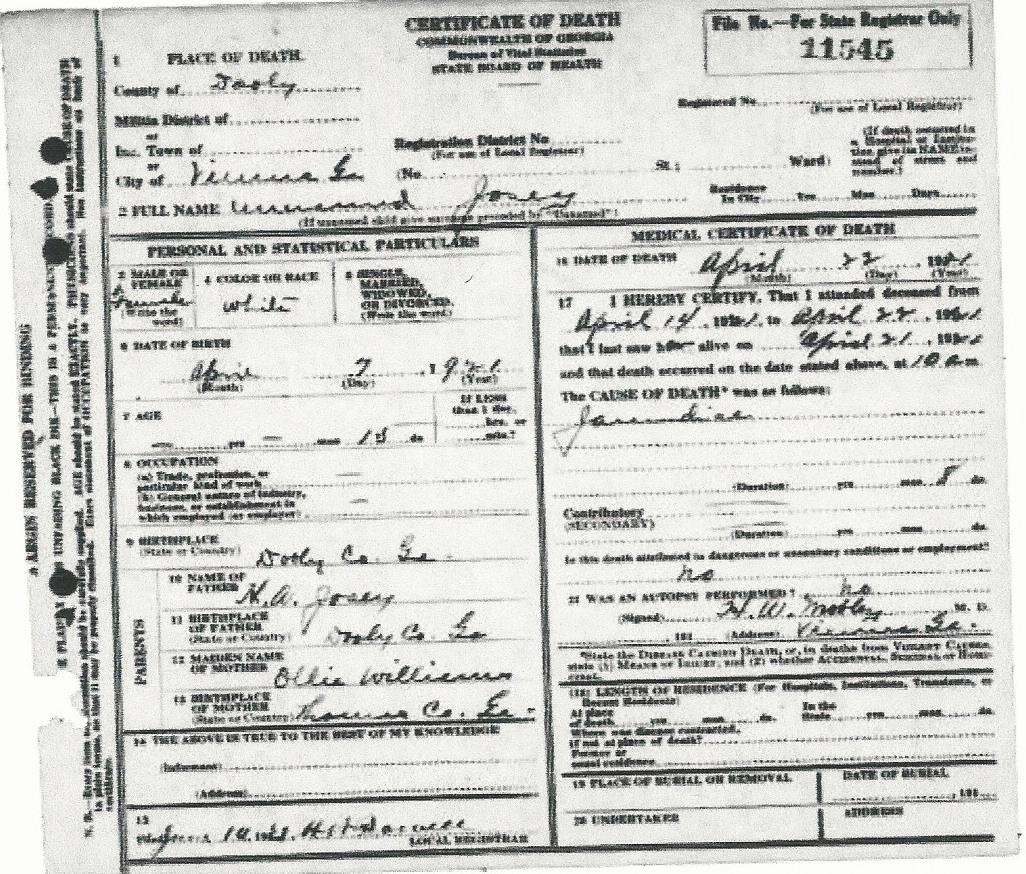 CERTIFICATE OF DEATH
COMMONWEALTH OF GEORGIA
Bureau of Vital Statistics
STATE BOARD OF HEALTH
File No.—For State Registrar Only
11545
1 PLACE OF DEATH.
County of Dooly
Registered No.
(For use of Local Registrar)
Militia District of
or
Inc. Town of
Registration District No.
(For use of Local Registrar)
or
City of Vienna Ga (No. St.; Ward)
(If death occurred in a Hospital or Institution give its NAME instead of street and number.)
Residence In City Yrs. Mos. Days
2 FULL NAME Unnamed Josey
(If unnamed child give surname preceded by "Unnamed")
PERSONAL AND STATISTICAL PARTICULARS
3 MALE OR FEMALE
Female
(Write the word)
4 COLOR OR RACE
White
5 SINGLE, MARRIED, WIDOWED, OR DIVORCED.
(Write the word)
6 DATE OF BIRTH
April 7 1921
(Month) (Day) (Year)
7 AGE
— yrs — mos 15 ds
If LESS than 1 day, hrs. or min.?
8 OCCUPATION
(a) Trade, profession, or particular kind of work —
(b) General nature of industry, business, or establishment in which employed (or employer) —
9 BIRTHPLACE
(State or Country) Dooly Co. Ga.
PARENTS
10 NAME OF FATHER H. A. Josey
11 BIRTHPLACE OF FATHER
(State or Country) Dooly Co. Ga
12 MAIDEN NAME OF MOTHER Ollie Williams
13 BIRTHPLACE OF MOTHER
(State or Country) Thomas Co. Ga.
14 THE ABOVE IS TRUE TO THE BEST OF MY KNOWLEDGE
(Informant)
(Address)
15
Filed
LOCAL REGISTRAR
MEDICAL CERTIFICATE OF DEATH
16 DATE OF DEATH April 22 1921
(Month) (Day) (Year)
17 I HEREBY CERTIFY, That I attended deceased from
April 14, 1921, to April 22 1921
that I last saw alive on April 21 1921
and that death occurred on the date stated above, at 10 a.m.
The CAUSE OF DEATH* was as follows:
Jaundice
(Duration) yrs mos 8 ds
Contributory
(SECONDARY)
(Duration) yrs mos ds
Is this death attributed to dangerous or insanitary conditions or employment?
no
21 WAS AN AUTOPSY PERFORMED? no
(Signed) H. W. Mobley M. D.
, 191 (Address) Vienna Ga.
*State the Disease Causing Death, or, in deaths from Violent Causes, state (1) Means of Injury; and (2) whether Accidental, Suicidal or Homicidal.
(18) LENGTH OF RESIDENCE (For Hospitals, Institutions, Transients, or Recent Residents)
At place of death yrs mos ds. In the State yrs mos ds.
Where was disease contracted, if not at place of death?
Former or usual residence
19 PLACE OF BURIAL OR REMOVAL
DATE OF BURIAL
, 191
20 UNDERTAKER
ADDRESS
MARGIN RESERVED FOR BINDING